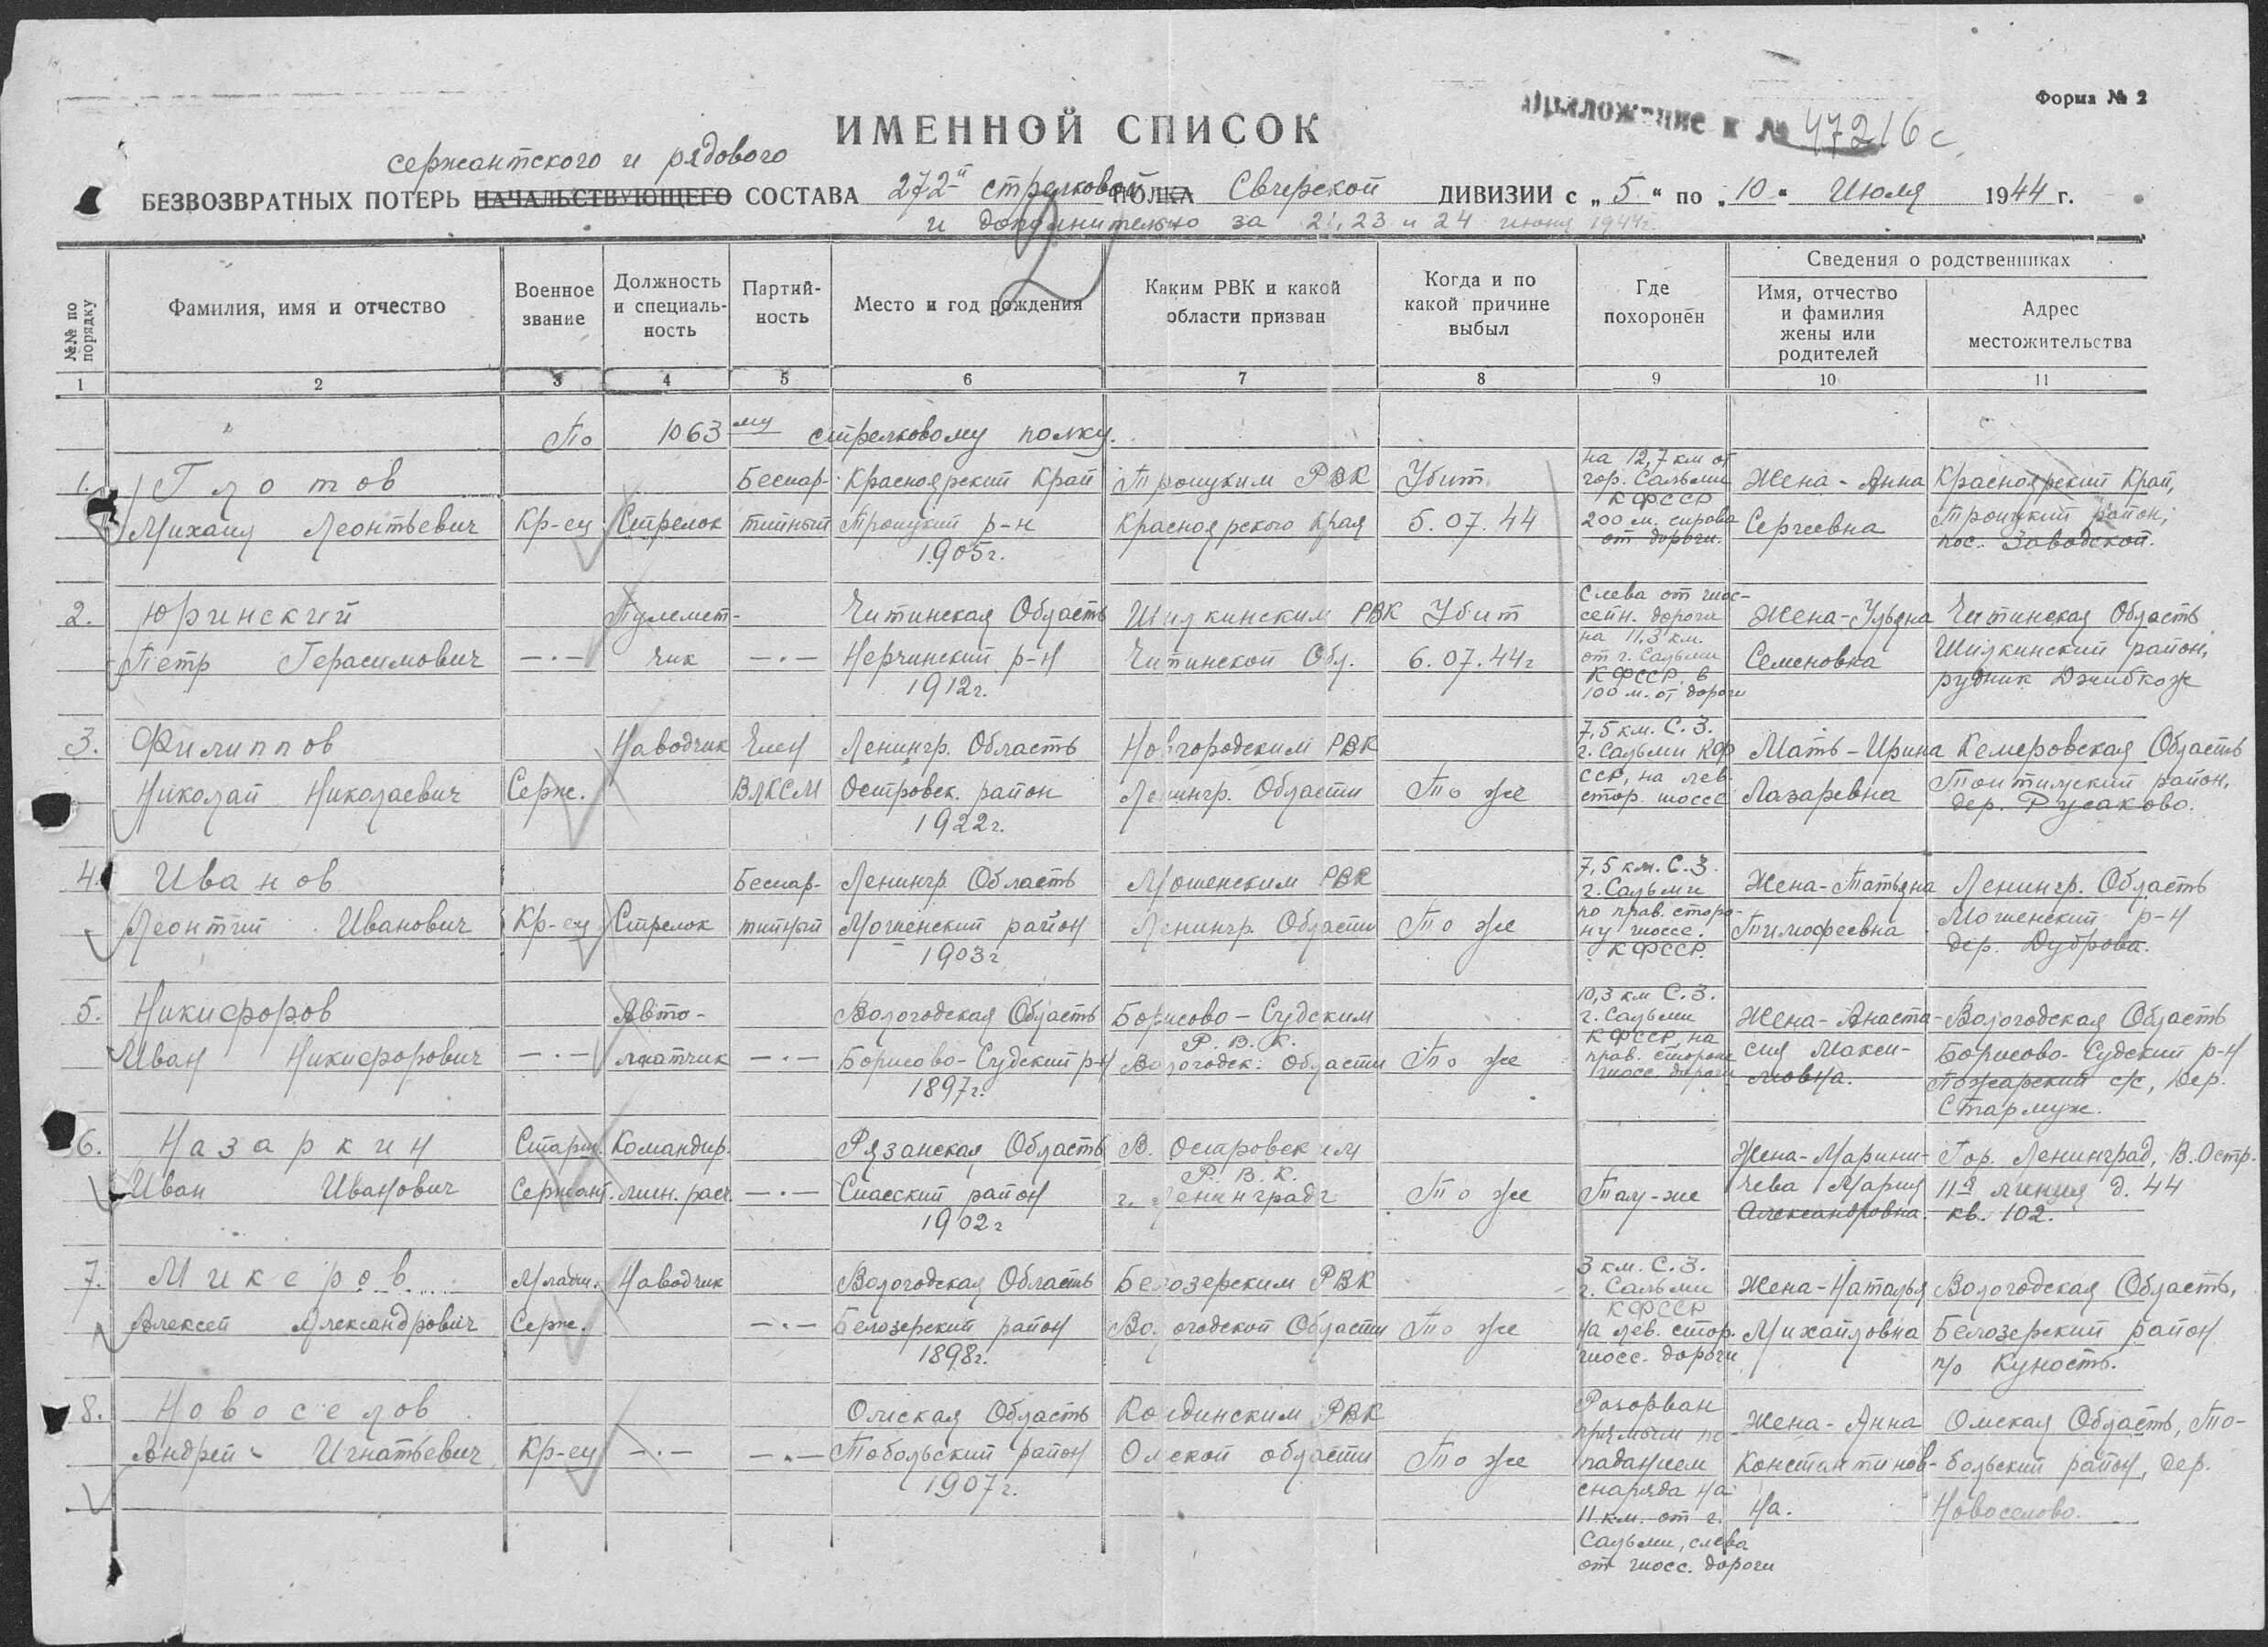 Форма № 2
Приложение к № 47216с
ИМЕННОЙ СПИСОК
сержантского и рядового
БЕЗВОЗВРАТНЫХ ПОТЕРЬ НАЧАЛЬСТВУЮЩЕГО СОСТАВА 272-й стрелковой ПОЛКА Свирской ДИВИЗИИ с „ 5 “ по „ 10 “ Июля 1944 г.
и дополнительно за 21, 23 и 24 июня 1944г.
№№ по порядку
Фамилия, имя и отчество
Военное звание
Должность и специаль-ность
Партий-ность
Место и год рождения
Каким РВК и какой области призван
Когда и по какой причине выбыл
Где похоронён
Сведения о родственниках
Имя, отчество и фамилия жены или родителей
Адрес местожительства
1 2 3 4 5 6 7 8 9 10 11
По 1063 му стрелковому полку.
1. Глотов
Михаил Леонтьевич
Кр-ец
Стрелок
Беспар-
тийный
Красноярский Край
Троицкий р-н
1905г.
Троицким РВК
Красноярского Края
Убит
5.07.44
на 12,7 км от
гор. Сальми
КФССР
200 м. справа
от дороги.
Жена - Анна
Сергеевна
Красноярский Край,
Троицкий район,
пос. Заводской.
2. Юринский
Петр Герасимович
—·—
Пулемет-
чик
—·—
Читинская Область
Нерчинский р-н
1912г.
Шилкинским РВК
Читинской Обл.
Убит
6.07.44г
Слева от шос-
сейн. дороги
на 11,3 км.
от г. Сальми
КФССР, в
100 м. от дороги
Жена-Ульяна
Семеновна
Читинская Область
Шилкинский район,
рудник Джибкож
3. Филиппов
Николай Николаевич
Серж.
Наводчик
Член
ВЛКСМ
Ленингр. Область
Островск. район
1922г.
Новгородским РВК
Ленингр. Области
То же
7,5 км. С.З.
г. Сальми КФ
ССР, на лев.
стор. шоссе
Мать-Ирина
Лазаревна
Кемеровская Область
район,
дер. Русаково.
4. Иванов
Леонтий Иванович
Кр-ец
Стрелок
Беспар-
тийный
Ленингр. Область
Мошенский район
1903г
Мошенским РВК
Ленингр. Области
То же
7,5 км. С.З.
г. Сальми
по прав. сторо-
ну шоссе.
КФССР.
Жена-Татьяна
Тимофеевна
Ленингр. Область
Мошенский р-н
дер. Дуброва.
5. Никифоров
Иван Никифорович
—·—
Авто-
матчик
—·—
Вологодская Область
Борисово-Судский р-н
1897г.
Борисово-Судским
Р.В.К.
Вологодск. Области
То же
10,3 км С.З.
г. Сальми
КФССР на
прав. стороне
шосс. дороги
Жена-Анаста-
сия Макси-
мовна.
Вологодская Область
Борисово-Судский р-н
Пожарский с/с, дер.
Стармуж.
6. Назаркин
Иван Иванович
Старш.
Сержант.
Командир.
мин. расч.
—·—
Рязанская Область
Спасский район
1902г
В. Островским
Р.В.К.
г. Ленинграда
То же
Там-же
Жена-Марини-
чева Мария
Александровна.
Гор. Ленинград, В. Остр.
11я линия д. 44
кв. 102.
7. Микеров
Алексей Александрович
Младш.
Серж.
Наводчик
—·—
Вологодская Область
Белозерский район
1898г.
Белозерским РВК
Вологодской Области
То же
3 км. С.З.
г. Сальми
КФССР
на лев. стор.
шосс. дороги
Жена-Наталья
Михайловна
Вологодская Область,
Белозерский район
п/о Куность.
8. Новоселов
Андрей Игнатьевич
Кр-ец
—·—
—·—
Омская Область
Тобольский район
1907г.
Кондинским РВК
Омской области
То же
Разорван
прямым по-
паданием
снаряда на
11 км. от г.
Сальми, слева
от шосс. дороги
Жена-Анна
Константинов-
на.
Омская Область, То-
больский район, дер.
Новоселово.